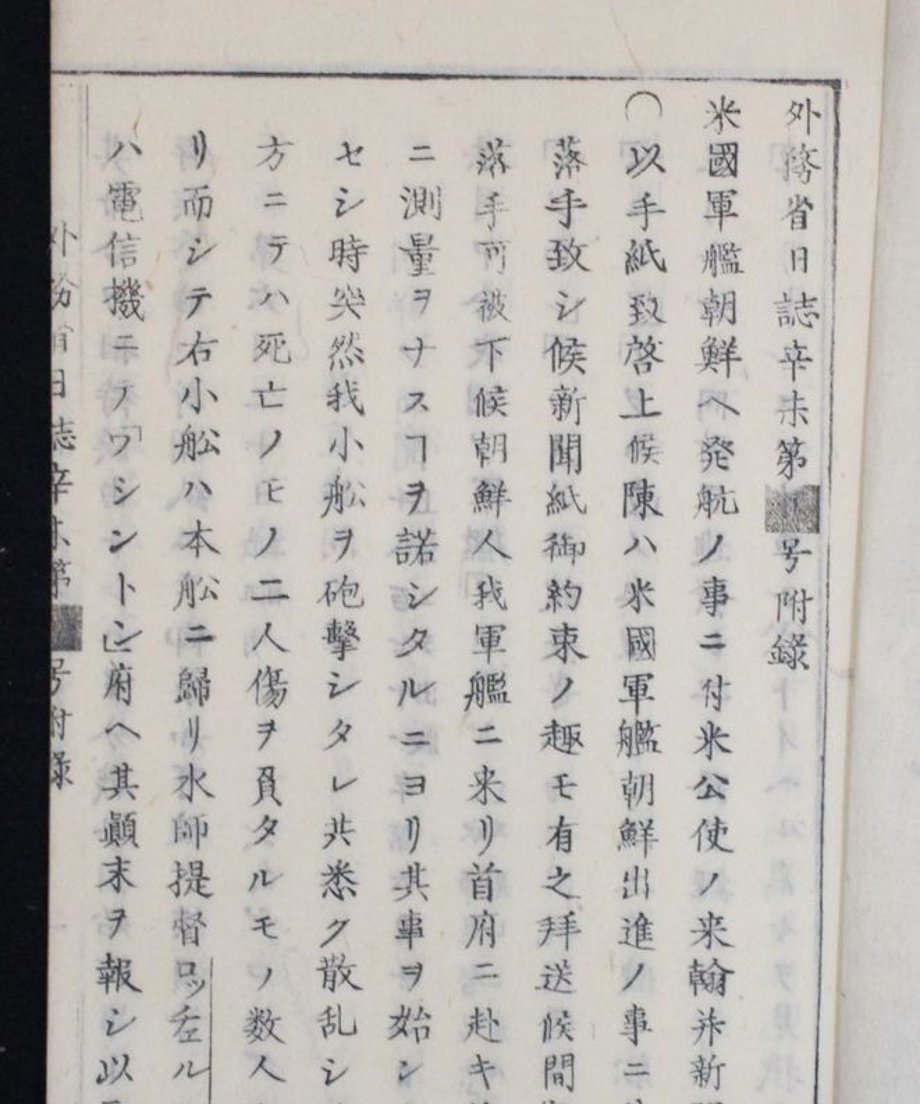 外務省日誌辛未第 号附錄
米國軍艦朝鮮ヘ発航ノ事ニ付米公使ノ来翰并新
〇以手紙致啓上候陳ハ米國軍艦朝鮮出進ノ事ニ
落手致シ候新聞紙御約束ノ趣モ有之拜送候間
落手可被下候朝鮮人我軍艦ニ来リ首府ニ赴キ
ニ測量ヲナスヿヲ諾シタルニヨリ其事ヲ始ン
セシ時突然我小舩ヲ砲擊シタレ共悉ク散乱シ
方ニテハ死亡ノモノ二人傷ヲ負タルモノ数人
リ而シテ右小舩ハ本舩ニ歸リ水師提督ロッ ル
ハ電信機ニテ「ワシントン」府ヘ其顛末ヲ報シ以
外務省日誌辛未第 号附錄